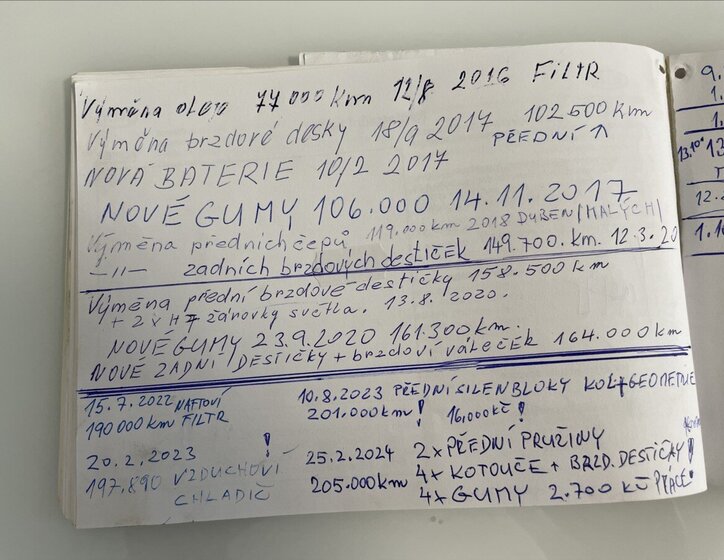 Výměna oleo 77 000 km 12/8 2016 FiLTR
Výměna brzdové desky 18/9 2017 102 500 km
PŘEDNÍ ↑
NOVÁ BATERIE 10/2 2017
NOVÉ GUMY 106.000 14.11.2017
Výměna předních čepů 119.000 km 2018 DUBEN /MALÝCH/
-"- zadních brzdových destiček 149.700 km. 12.3.20
Výměna přední brzdové destičky 158.500 km
+ 2 x H7 žárovky světla. 13.8.2020.
NOVÉ GUMY 23.9.2020 161.300 km.
NOVÉ ZADNÍ DESTIČKY + brzdoví váleček 164.000 km
15.7.2022 NAFTOVÍ
190 000 km FILTR
10.8.2023 PŘEDNÍ SILENBLOKY KOL+GEOMETRIE
201.000 km! 16.000 kč!
20.2.2023 !
197.890 VZDUCHOVÍ
CHLADIČ
25.2.2024 2x PŘEDNÍ PRUŽINY
4x KOTOUČE + BRZD. DESTIČKY!
205.000 km 4x GUMY 2.700 kč PRÁCE!
9.
1.
1.
13.10.
12.
1.1